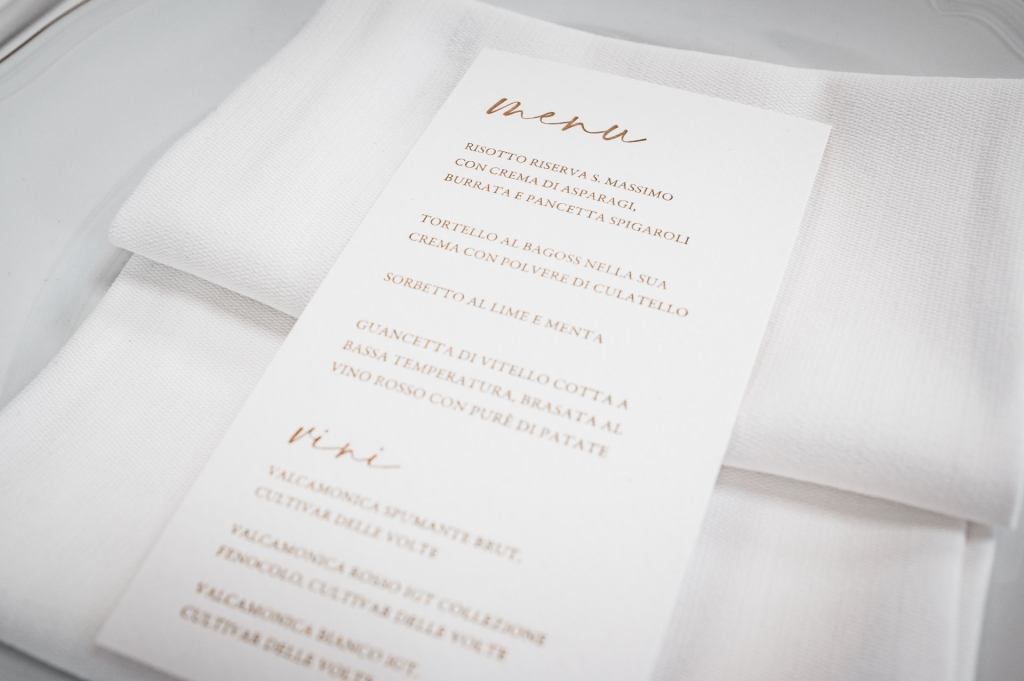 menu
RISOTTO RISERVA S. MASSIMO
CON CREMA DI ASPARAGI,
BURRATA E PANCETTA SPIGAROLI
TORTELLO AL BAGOSS NELLA SUA
CREMA CON POLVERE DI CULATELLO
SORBETTO AL LIME E MENTA
GUANCETTA DI VITELLO COTTA A
BASSA TEMPERATURA, BRASATA AL
VINO ROSSO CON PURÈ DI PATATE
vini
VALCAMONICA SPUMANTE BRUT,
CULTIVAR DELLE VOLTE
VALCAMONICA ROSSO IGT COLLEZIONE
FENOCOLO, CULTIVAR DELLE VOLTE
VALCAMONICA BIANCO IGT,
CULTIVAR DELLE VOLTE